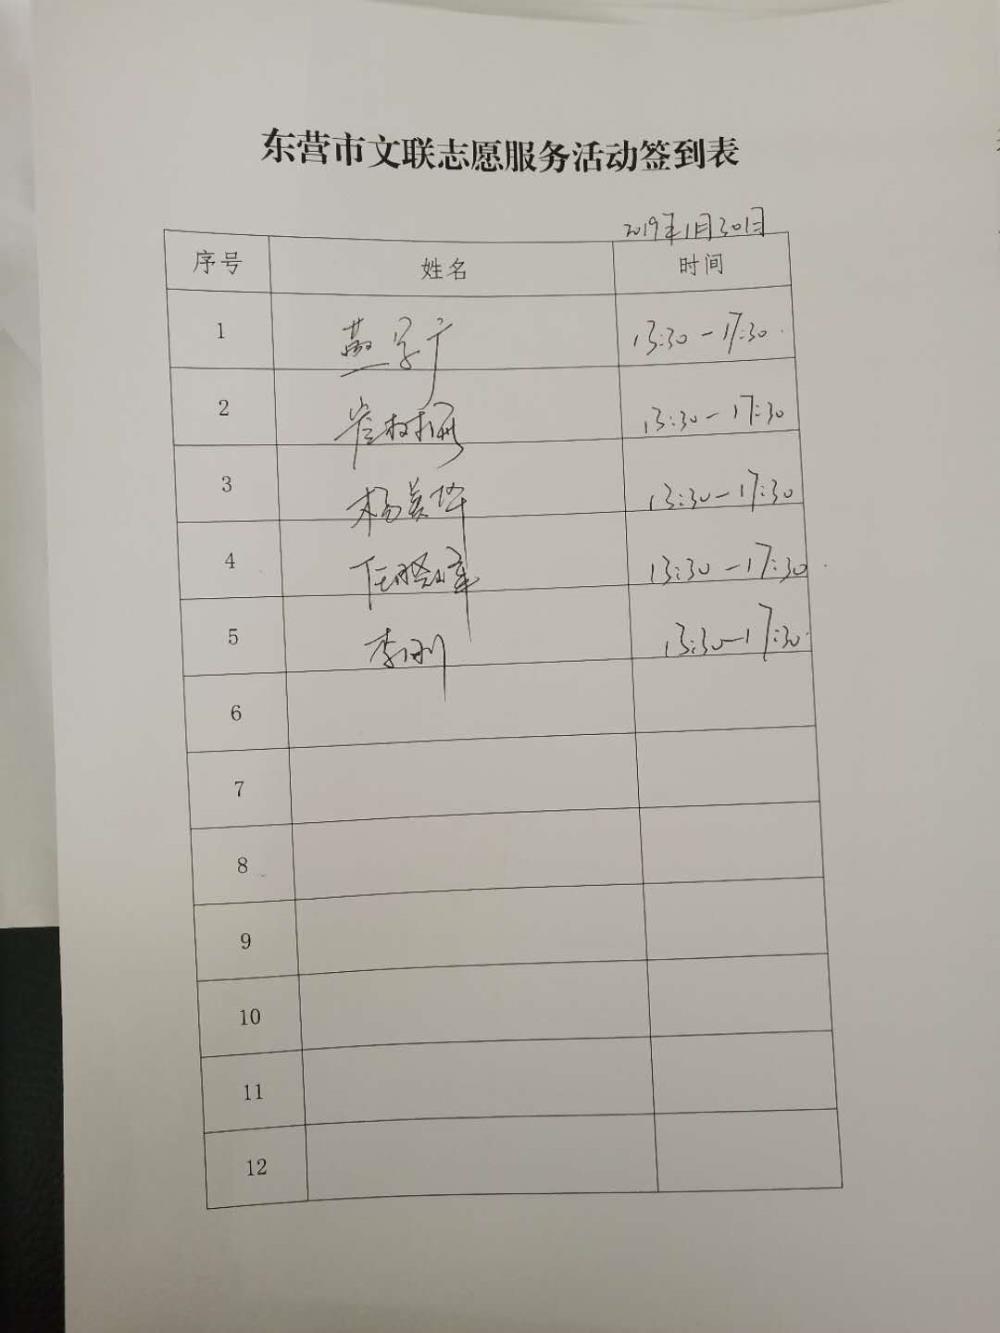 东营市文联志愿服务活动签到表
2019年1月30日
序号 姓名 时间
1 燕学广 13:30-17:30
2 13:30-17:30
3 杨美华 13:30-17:30
4 任晓峰 13:30-17:30
5 李刚 13:30-17:30
6
7
8
9
10
11
12